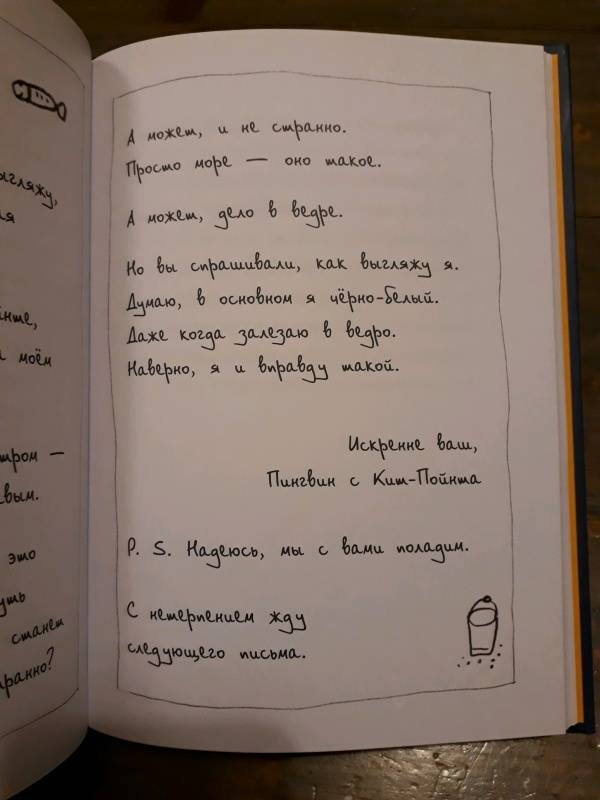 ыгляжу,
моём
это
станет
А может, и не странно.
Просто море — оно такое.
А может, дело в ведре.
Но вы спрашивали, как выгляжу я.
Думаю, в основном я чёрно-белый.
Даже когда залезаю в ведро.
Наверно, я и вправду такой.
Искренне ваш,
Пингвин с Кит-Пойнта
P. S. Надеюсь, мы с вами поладим.
С нетерпением жду
следующего письма.